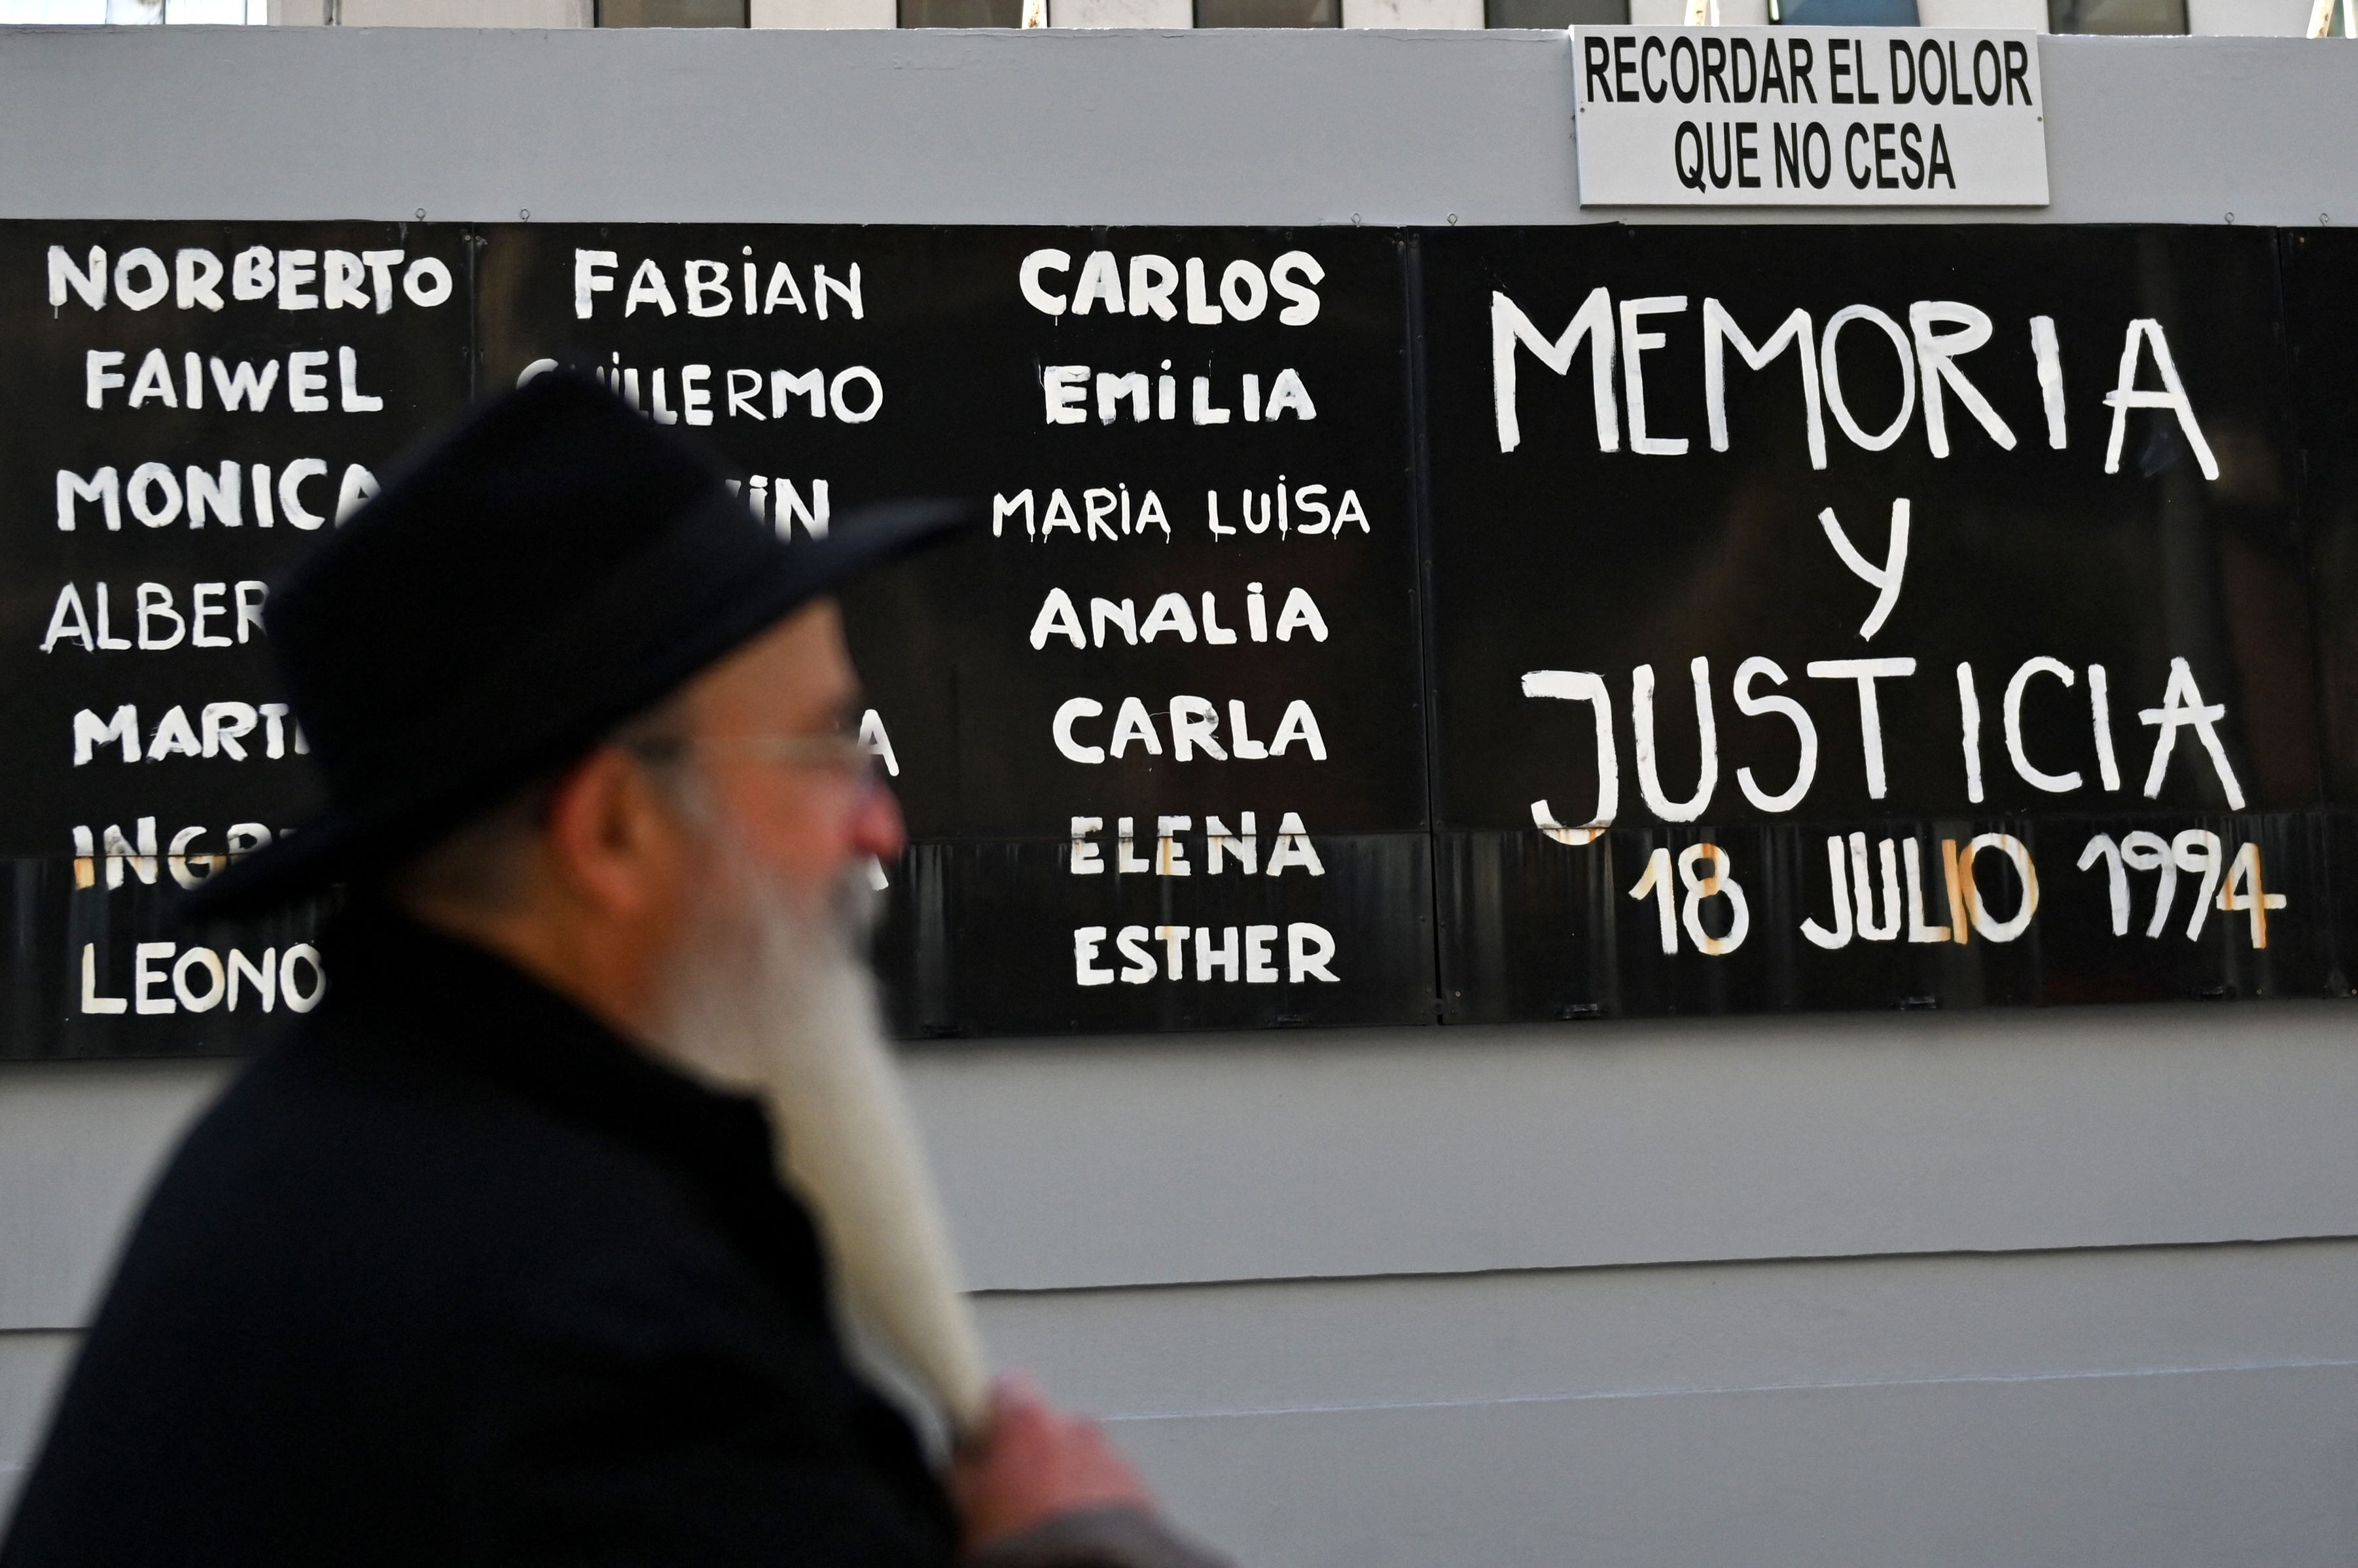 RECORDAR EL DOLOR
QUE NO CESA
NORBERTO
FAIWEL
MONICA
FABIAN
CARLOS
EMILIA
MARIA LUISA
ANALIA
CARLA
ELENA
ESTHER
MEMORIA
Y
JUSTICIA
18 JULIO 1994